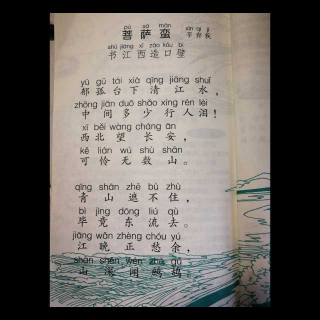 pú sà mán
菩萨蛮
xīn qì jí
辛弃疾
shū jiāng xī zào kǒu bì
书江西造口壁
yù gū tái xià qīng jiāng shuǐ
郁孤台下清江水，
zhōng jiān duō shǎo xíng rén lèi
中间多少行人泪！
xī běi wàng cháng ān
西北望长安，
kě lián wú shù shān
可怜无数山。
qīng shān zhē bù zhù
青山遮不住，
bì jìng dōng liú qù
毕竟东流去。
jiāng wǎn zhèng chóu yú
江晚正愁余，
shān shēn wén zhè gū
山深闻鹧鸪。